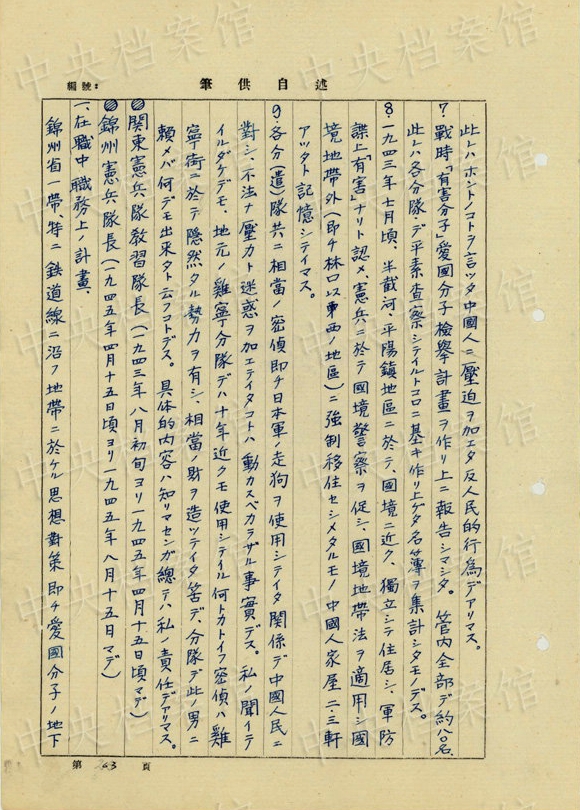 述自供筆
編號:
此レハホントノコトヲ言ツタ中國人ニ壓迫ヲ加エタ反人民的行為デアリマス。
7. 戰時「有害分子」愛國分子檢擧計畫ヲ作リ上ニ報告シマシタ。管内全部デ約八〇名、
此レハ各分隊デ平素査察シテイルトコロニ基キ作リ上ゲタ名簿ヲ集計シタモノデス。
8. 一九四三年七月頃、半截河、平陽鎮地區ニ於テ、國境ニ近ク、獨立シテ住居シ、軍防
諜上「有害」ナリト認メ、憲兵ニ於テ國境警察ヲ促シ、國境地帶法ヲ適用シ國
境地帶外（即チ林口以東西ノ地區）ニ強制移住セシメタルモノ中國人家屋二、三軒
アツタト記憶シテイマス。
9. 各分（遣）隊共ニ相當ノ密偵即チ日本軍ノ走狗ヲ使用シテイタ関係デ中國人民ニ
對シ、不法ナ壓力ト迷惑ヲ加エテイタコトハ動カスベカラザル事實デス。私ノ聞イテ
イルダケデモ、地元ノ雞寧分隊デハ十年近クモ使用シテイル何トカトイフ密偵ハ雞
寧街ニ於テ隠然タル勢力ヲ有シ、相當ノ財ヲ造ツテイタ筈デ、分隊デ此ノ男ニ
頼メバ何デモ出来タト云フコトデス。具体的内容ハ知リマセンガ總テハ私ノ責任デアリマス。
◎関東憲兵隊教習隊長（一九四三年八月初旬ヨリ一九四五年四月十五日頃マデ）
◎錦州憲兵隊長（一九四五年四月十五日頃ヨリ一九四五年八月十五日マデ）
一、在職中職務上ノ計畫、
錦州省一帶、特ニ鉄道線ニ沿フ地帶ニ於ケル思想對策即チ愛國分子ノ地下
第 63 頁
中央档案馆